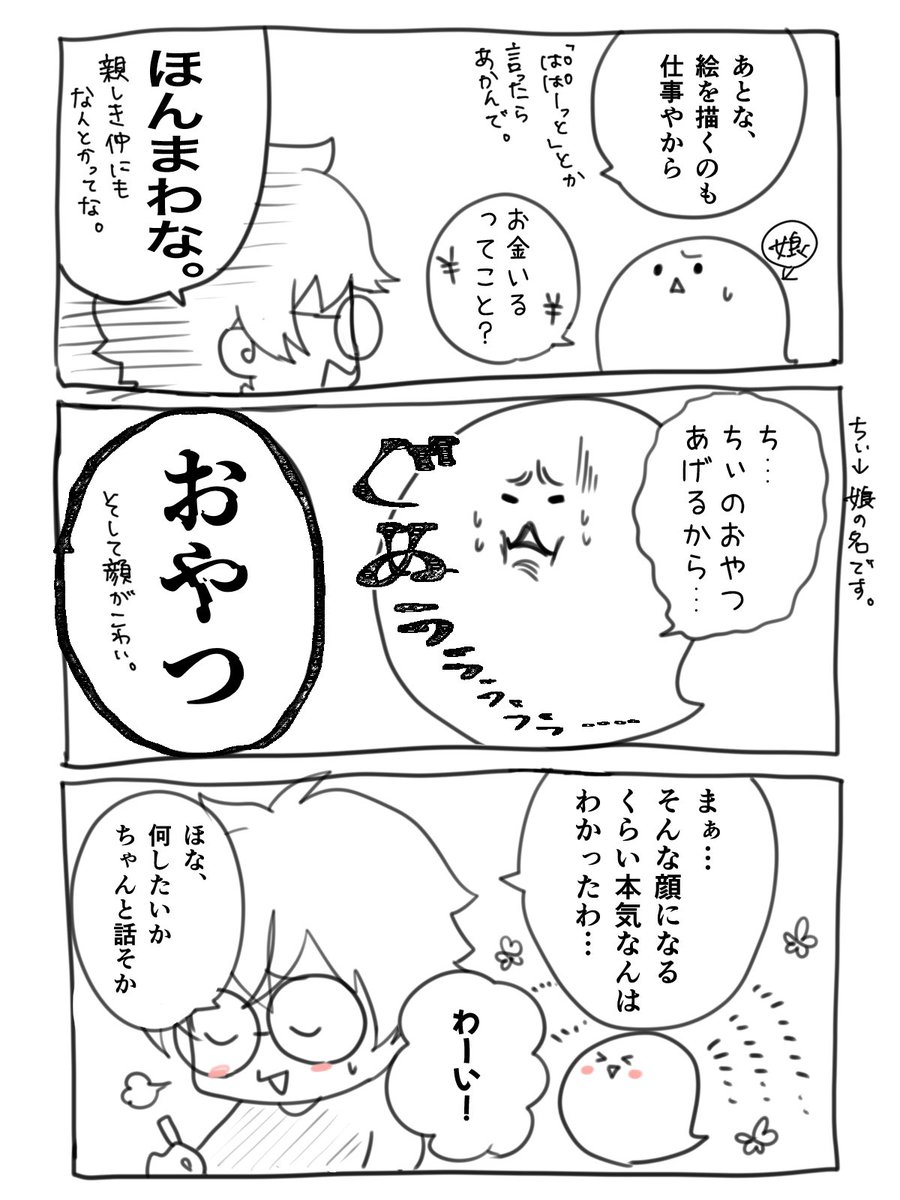 あとな、
絵を描くのも
仕事やから
「ぱぱーっと」とか
言ったら
あかんで。
娘
お金いる
ってこと？
¥
¥
ほんまわな。
親しき仲にも
なんとかってな。
ち…
ちぃのおやつ
あげるから…
ちぃ→娘の名です。
ぐぁラララララララ……
おやつ
そして顔がこわい。
まぁ…
そんな顔になる
くらい本気なんは
わかったわ…
わーい！
ほな、
何したいか
ちゃんと話そか